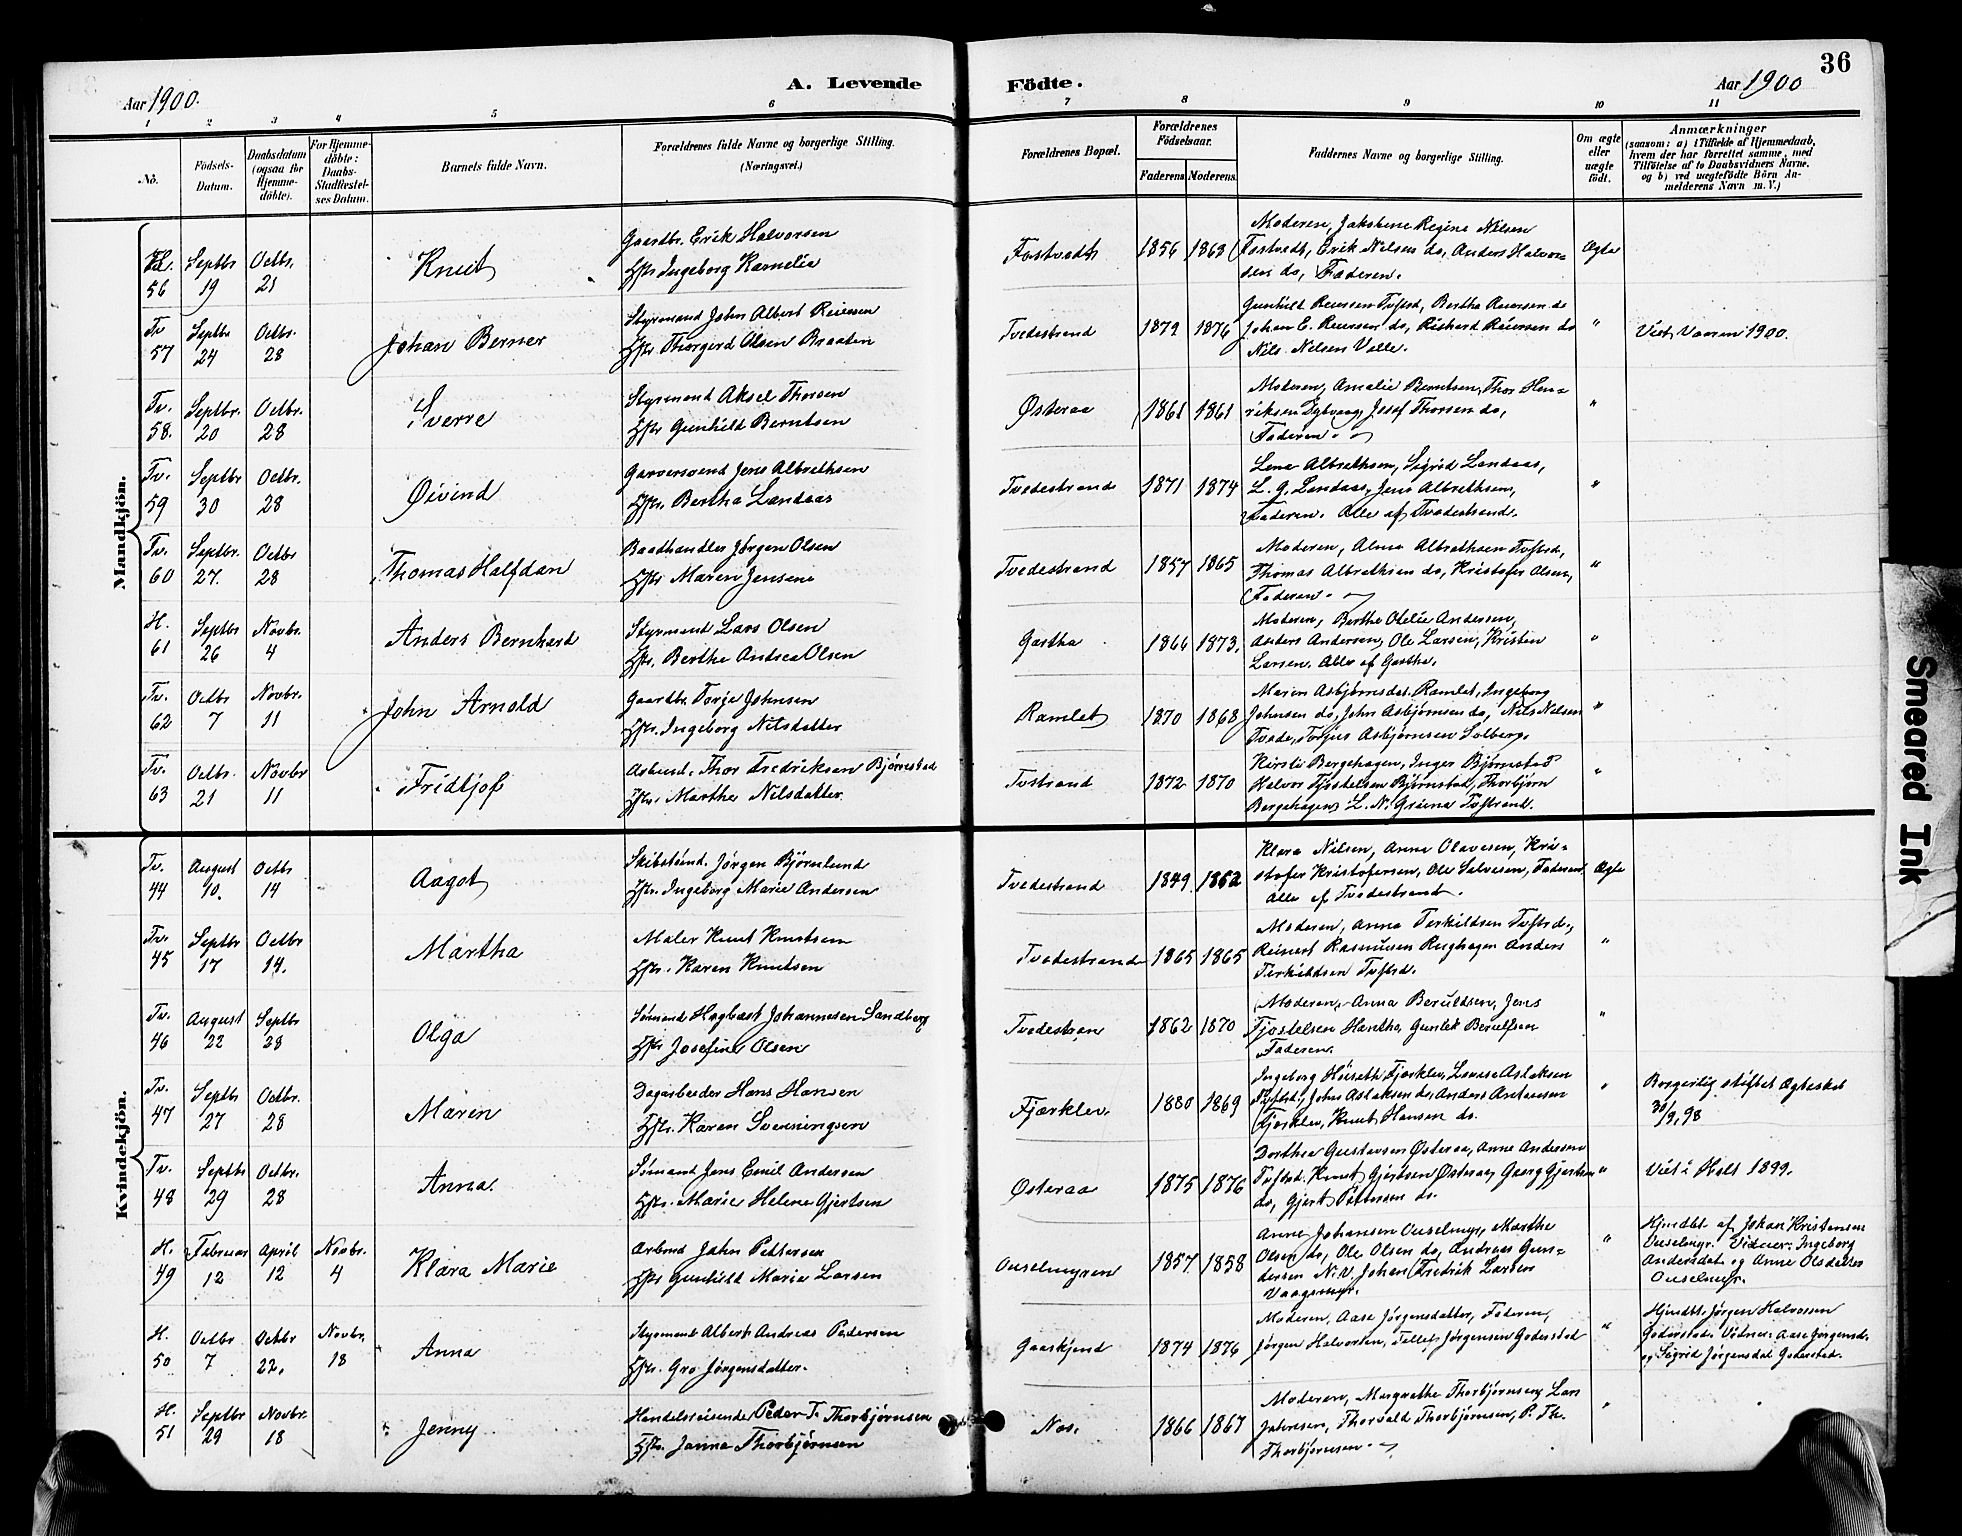 36
Aar 1900.
A. Levende
Födte.
Aar 1900
1 2 3 4 5 6 7 8 9 10 11
No.
Födsels-
Datum.
Daabsdatum
(ogsaa for
Hjemme-
döbte).
For Hjemme-
döbte:
Daabs-
Stadfæstel-
ses Datum.
Barnets fulde Navn.
Forældrenes fulde Navne og borgerlige Stilling.
(Næringsvei.)
Forældrenes Bopæl.
Forældrenes
Födselsaar.
Faderens Moderens.
Faddernes Navne og borgerlige Stilling.
Om ægte
eller
uægte
födt.
Anmærkninger
(saasom: a) i Tilfælde af Hjemmedaab,
hvem der har forrettet samme, med
Tilföielse af to Daabsvidners Navne.
og b) ved uægtefödte Börn An-
melderens Navn m. V.)
Mandkjön.
56
Septbr
19
Octbr.
21
Knut
Gaardbr. Erik Halvorsen
Hstr Ingeborg Kornelia
Fostvedt
1856 1863
Moderen, Jakobine Regine Nilsen
Fostvedt, Erik Nilsen do, Anders Halvor-
sen do, Faderen.
Ægte
Tv
57
Septbr
24
Octbr.
28
Johan Berner
Styrmand John Albert Reiersen
Hstr Thorgerd Olsen Braaten
Tvedestrand
1872 1876
Gunhild Reiersen Tvstrd, Bertha Reiersen do
Johan E. Reiersen do, Rikhard Reiersen do
Nils Nilsen Valle.
"
Viet Vaaren 1900.
Tv.
58.
Septbr.
20
Octbr.
28
Sverre
Styrmand Aksel Thorsen
Hstr Gunhild Berntsen
Østeraa
1861 1861
Moderen, Amalie Berntsen, Thor Hen-
riksen Dybvaag, Josef Thorsen do,
Faderen.
"
Tv.
59
Septbr
30
Octbr.
28
Øivind
Garversvend Jens Albrethsen
Hstr. Bertha Landaas
Tvedestrand
1871 1874
Lena Albrethsen, Sigrid Landaas,
L. G. Landaas, Jens Albrethsen,
Faderen. Alle af Tvedestrand.
"
Tv.
60
Septbr.
27.
Octbr
28
Thomas Halfdan
Baadhandler Jørgen Olsen
Hstr Maren Jensine
Tvedestrand
1857 1865
Moderen, Alma Albrethsen Tvstrd,
Thomas Albrethsen do, Kristofer Olsen,
Faderen.
"
H.
61
Septbr
26
Novbr.
4
Anders Bernhard
Styrmand Lars Olsen
Hstr. Berthe Andrea Olsen
Gastha
1866 1873.
Moderen, Berthe Otelie Andersen,
Anders Andersen, Ole Larsen, Kristen
Larsen. Alle af Gastha.
"
Tv.
62
Octbr
7
Novbr.
11
John Arnold
Gaardbr. Torje Johnsen
Hstr. Ingeborg Nilsdatter
Ramlet
1870 1868
Maren Asbjørnsdat. Ramlet, Ingeborg
Johnsen do, John Asbjørnsen do, Nils Nilsen
Tvede, Torjus Asbjørnsen Solberg.
"
Tv.
63
Octbr.
21
Novbr
11
Fridtjof
Thor Fredriksen Bjørnstad
Hstr. Marthe Nilsdatter.
Tvstrand
1872 1870
Kirsti Bergehagen, Inger Bjørnstad
Halvor Fjostelsen Bjørnstad, Thorbjørn
Bergehagen, L. N. Tvstrand.
"
Kvindekjön.
Tv.
44
August
10.
Octbr
14
Aagot
Jørgen Bjørnlund
Hstr. Ingeborg Marie Andersen
Tvedestrand
1849 1862
Klara Nilsen, Anne Olavesen, Kri-
stofer Kristofersen, Ole Salvesen, Faderen
Alle af Tvedestrand.
Ægte
Tv.
45
Septbr
17
Octbr
14.
Martha
Maler Knut Knutsen
Hstr. Karen Knutsen
Tvedestrand
1865 1865
Moderen, Anna Terkildsen Tvstrd.,
Reinert Rasmussen Anders
Terkildsen Tvstrd.
"
Tv.
46
August
22
Septbr
28
Olga
Sømand Hagbart Johannesen Sandberg
Hstr Josefine Olsen
Tvedestran
1862 1870
Moderen, Anna Berulfsen, Jens
Fjostelsen Hantho, Gunlek Berulfsen
Faderen.
"
Tv.
47
Septbr
27
Octbr.
28
Maren
Dagarbeider Hans Hansen
Hstr. Karen Svenningsen
Fjærklev.
1880 1869
Ingeborg Fjærklev, Lovise Aslaksen
Tvstrd, John Aslaksen do, Anders Antonsen
Fjærklev, Knut Hansen do.
"
Borgerlig stiftet Ægteskab
30/9, 98
Tv.
48
Septbr
29
Octbr.
28
Anna.
Sømand Jens Emil Andersen
Hstr. Marie Helene Gjertsen
Østeraa
1875 1876
Dorthea Gustavsen Østeraa, Anne Andersen
Tvstrd. Knut Gjertsen Østeraa, Georg Gjertsen
do, Gjert Pettersen do.
"
Viet i Holt 1899.
H.
49
Februar
12
April
12
Novbr.
4
Klara Marie
Arbmd John Pettersen
Hstr Gunhild Marie Larsen
Ouselmyren
1857. 1858
Anne Johansen Ouselmyr, Marthe
Olsen do, Ole Olsen do, Andreas Gun-
dersen N. V. Johan Fredrik Larsen
Vaagsmyr.
"
Hjmdbt af Johan Kristensen
Ouselmyr. Vidner: Ingeborg
Andersdat. og Anne Olsdatter
Ouselmyr.
H.
50
Octbr
7
Octbr
22.
Novbr.
18
Anna
Styrmand Albert Andreas Pedersen
Hstr. Gro Jørgensdatter.
Gaaskjend
1874 1876
Moderen, Aase Jørgensdatter, Faderen,
Jørgen Halvorsen, Tellef Jørgensen Goderstad
"
Hjmdbt. Jørgen Halvorsen
Goderstad. Vidner: Aase Jørgensd.
og Sigrid Jørgensdat Goderstad.
H.
51
Septbr
29
Novbr.
18
Jenny
Handelsreisende Peder T. Thorbjørnsen
Hstr. Janna Thorbjørnsen
Nes.
1866 1867
Moderen, Margrethe Thorbjørnsen, Lars
Jakobsen, Thorvald Thorbjørnsen, P. Th.
Thorbjørnsen
"
Smeared Ink